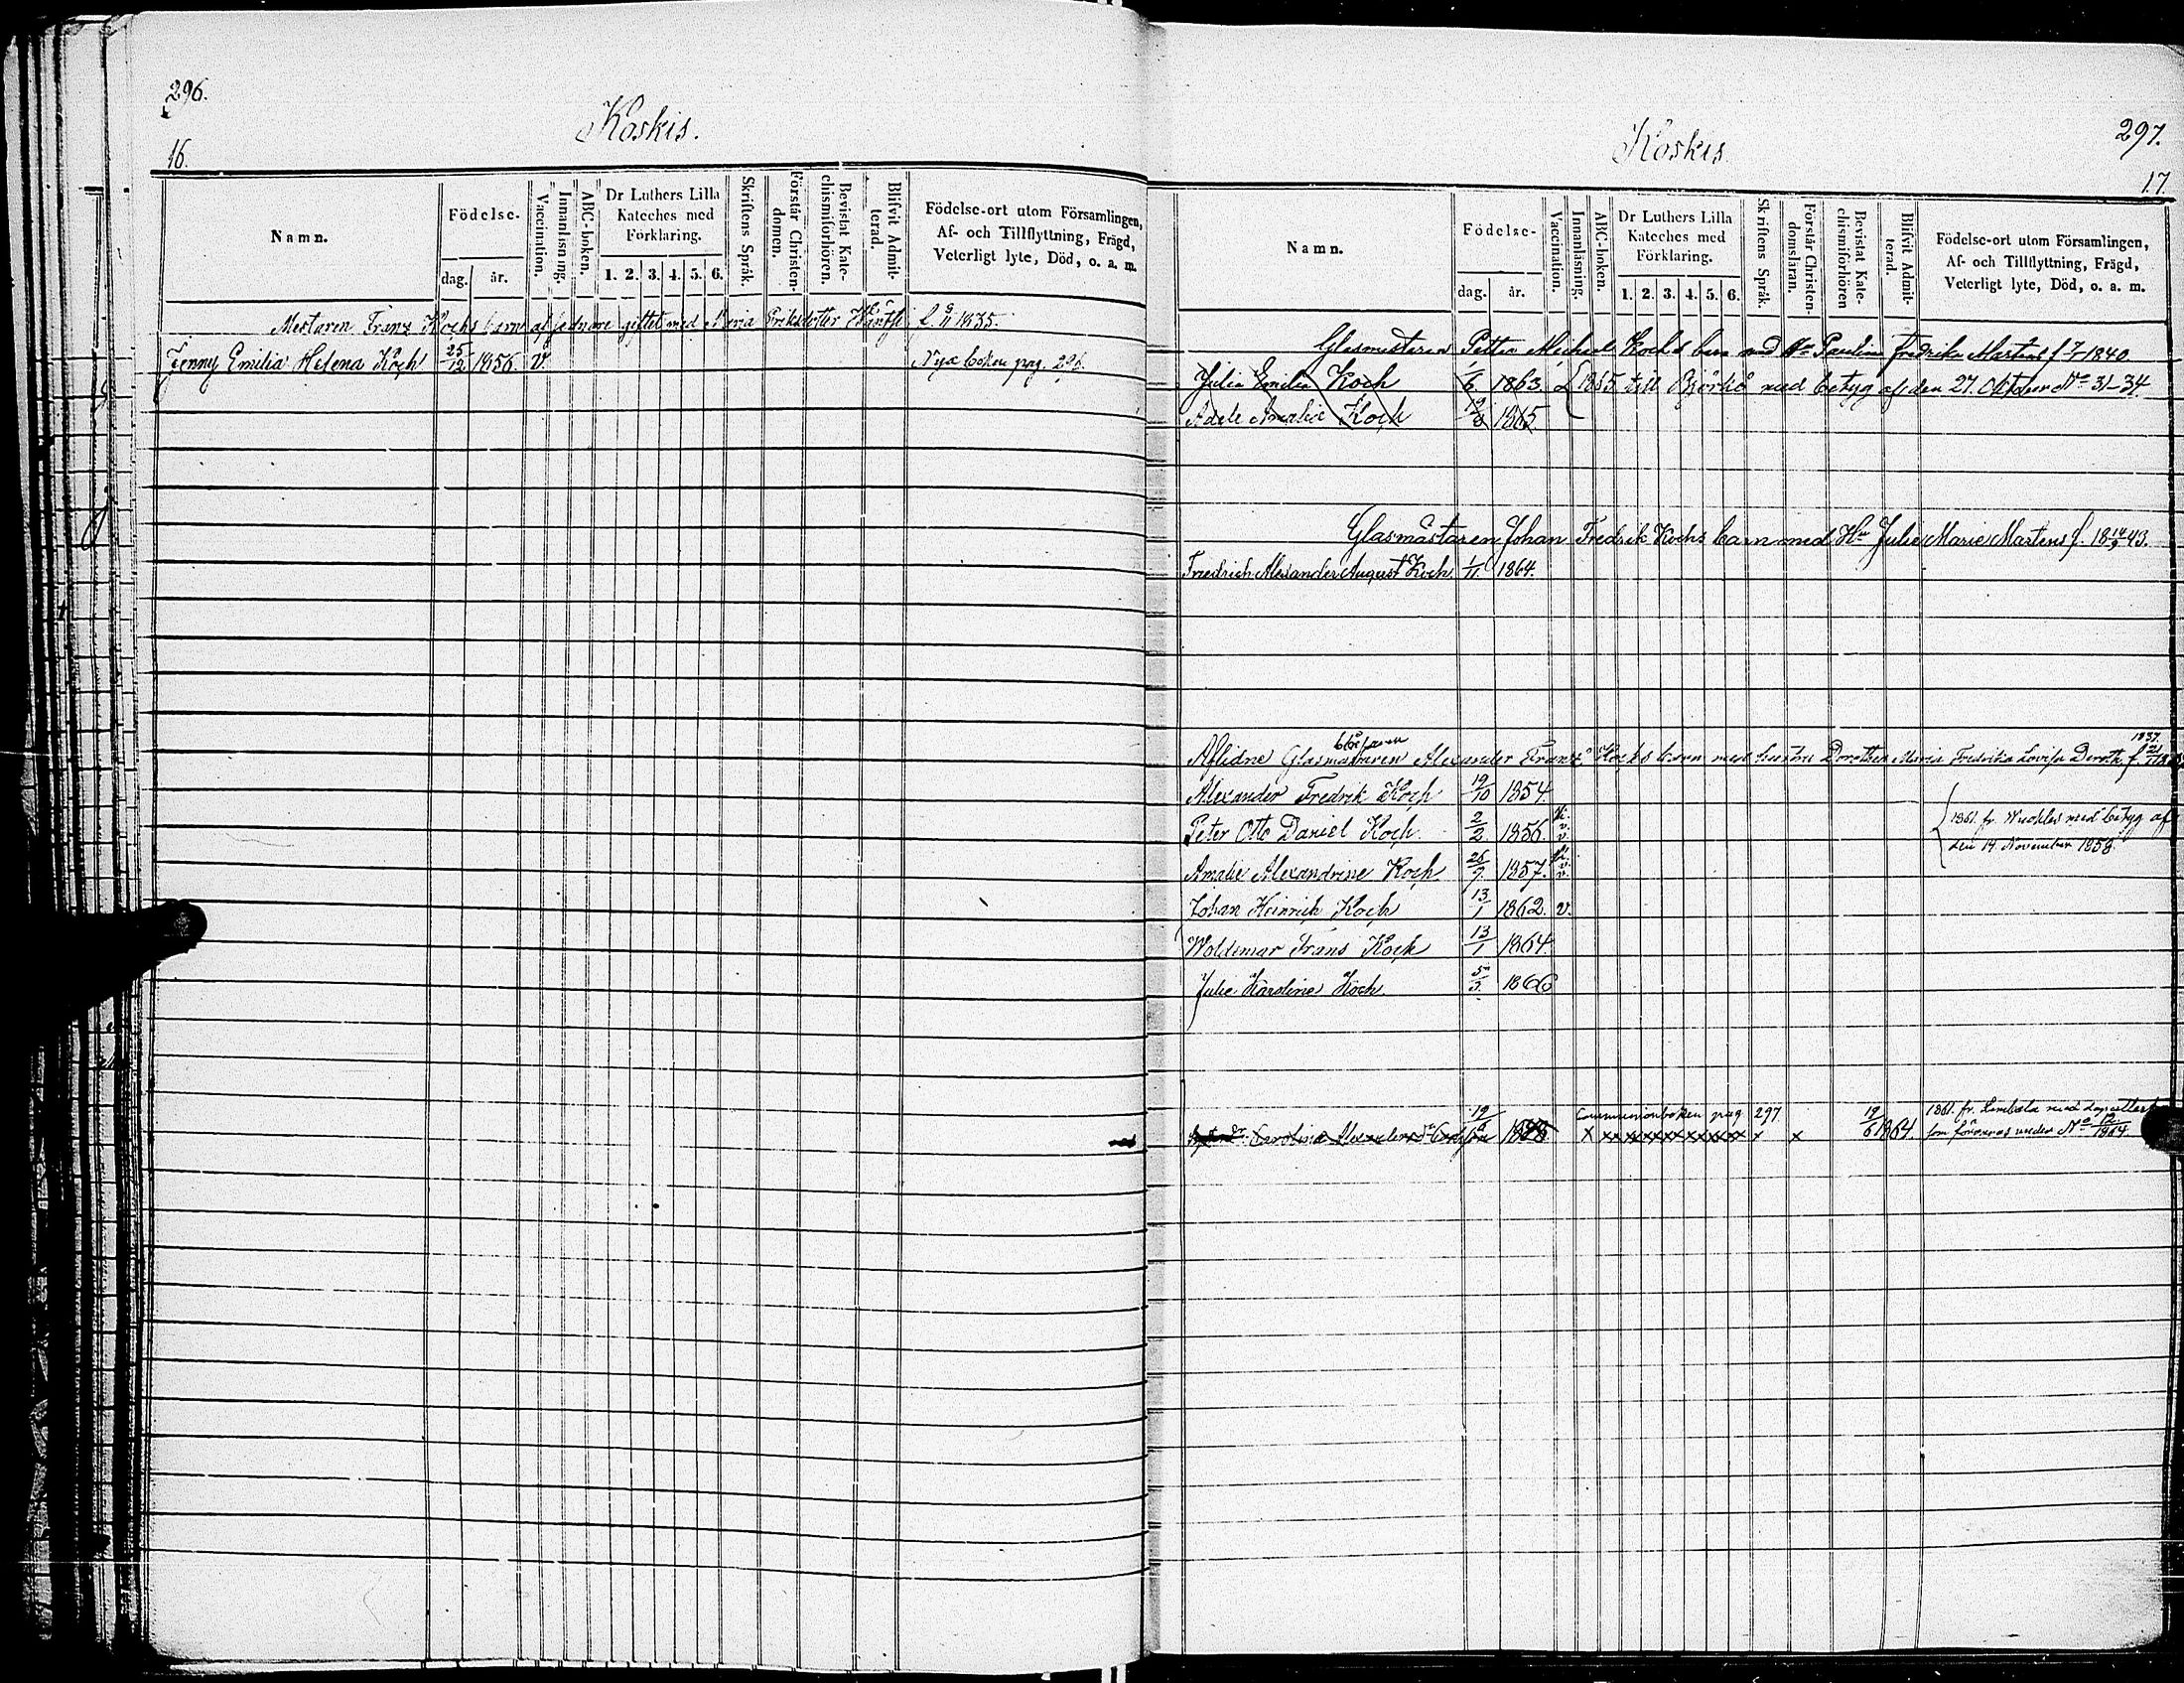 296.
Koskis.
16.
Namn.
Födelse-
dag.
år.
Vaccination.
Innanläsning.
ABC-boken.
Dr Luthers Lilla
Kateches med
Förklaring.
1. 2. 3. 4. 5. 6.
Skriftens Språk.
Förstår Christen-
domen.
Bevistat Kate-
chismiförhören.
Blifvit Admit-
terad.
Födelse-ort utom Församlingen,
Af- och Tillflyttning, Frägd,
Veterligt lyte, Död, o. a. m.
Mästaren Franz Kochs barn af gift med Maria Eriksdotter f. 1835.
Jenny Emilia Helena Koch 25/12 1856. v. Nya boken pag. 296.
297.
Koskis
17.
Namn.
Födelse-
dag.
år.
Vaccination.
Innanläsning.
ABC-boken.
Dr Luthers Lilla
Kateches med
Förklaring.
1. 2. 3. 4. 5. 6.
Skriftens Språk.
Förstår Christen-
domsläran.
Bevistat Kate-
chismiförhören
Blifvit Admit-
terad.
Födelse-ort utom Församlingen,
Af- och Tillflyttning, Frägd,
Veterligt lyte, Död, o. a. m.
Glasmästaren Petter Michael Kochs barn med Hu Paulina Fredrika Martens f. 1840
Julia Emilia Koch 1863. 1865 till Björkö med betyg af den 27. Oktober No 31-34.
Adele Amalie Koch 1865
Glasmästaren Johan Fredrik Kochs barn med Hu Julie Marie Martens f. 18 43.
Friedrich Alexander August Koch 1/11 1864.
blåsaren 1837.
Aflidne Glasmästaren Alexander Franz Kochs barn med hustru Dorothea Maria Fredrika Lovisa f.
Alexander Fredrik Koch 19/10 1854.
Peter Otto Daniel Koch. 2/2 1856. v. 1861. fr. med betyg af
den 14 November 1858.
Amalie Alexandrine Koch 1857. v.
Johan Heinrich Koch 13/1 1862. v.
Woldemar Frans Koch 13/1 1864.
Julie Karoline Koch 5/3 1866
19 Communionboken pag 297. 19 1861. fr. med
Carolina 18 x xxxxxxxxxxx x x 6 1864. som förvaras under No 1864.